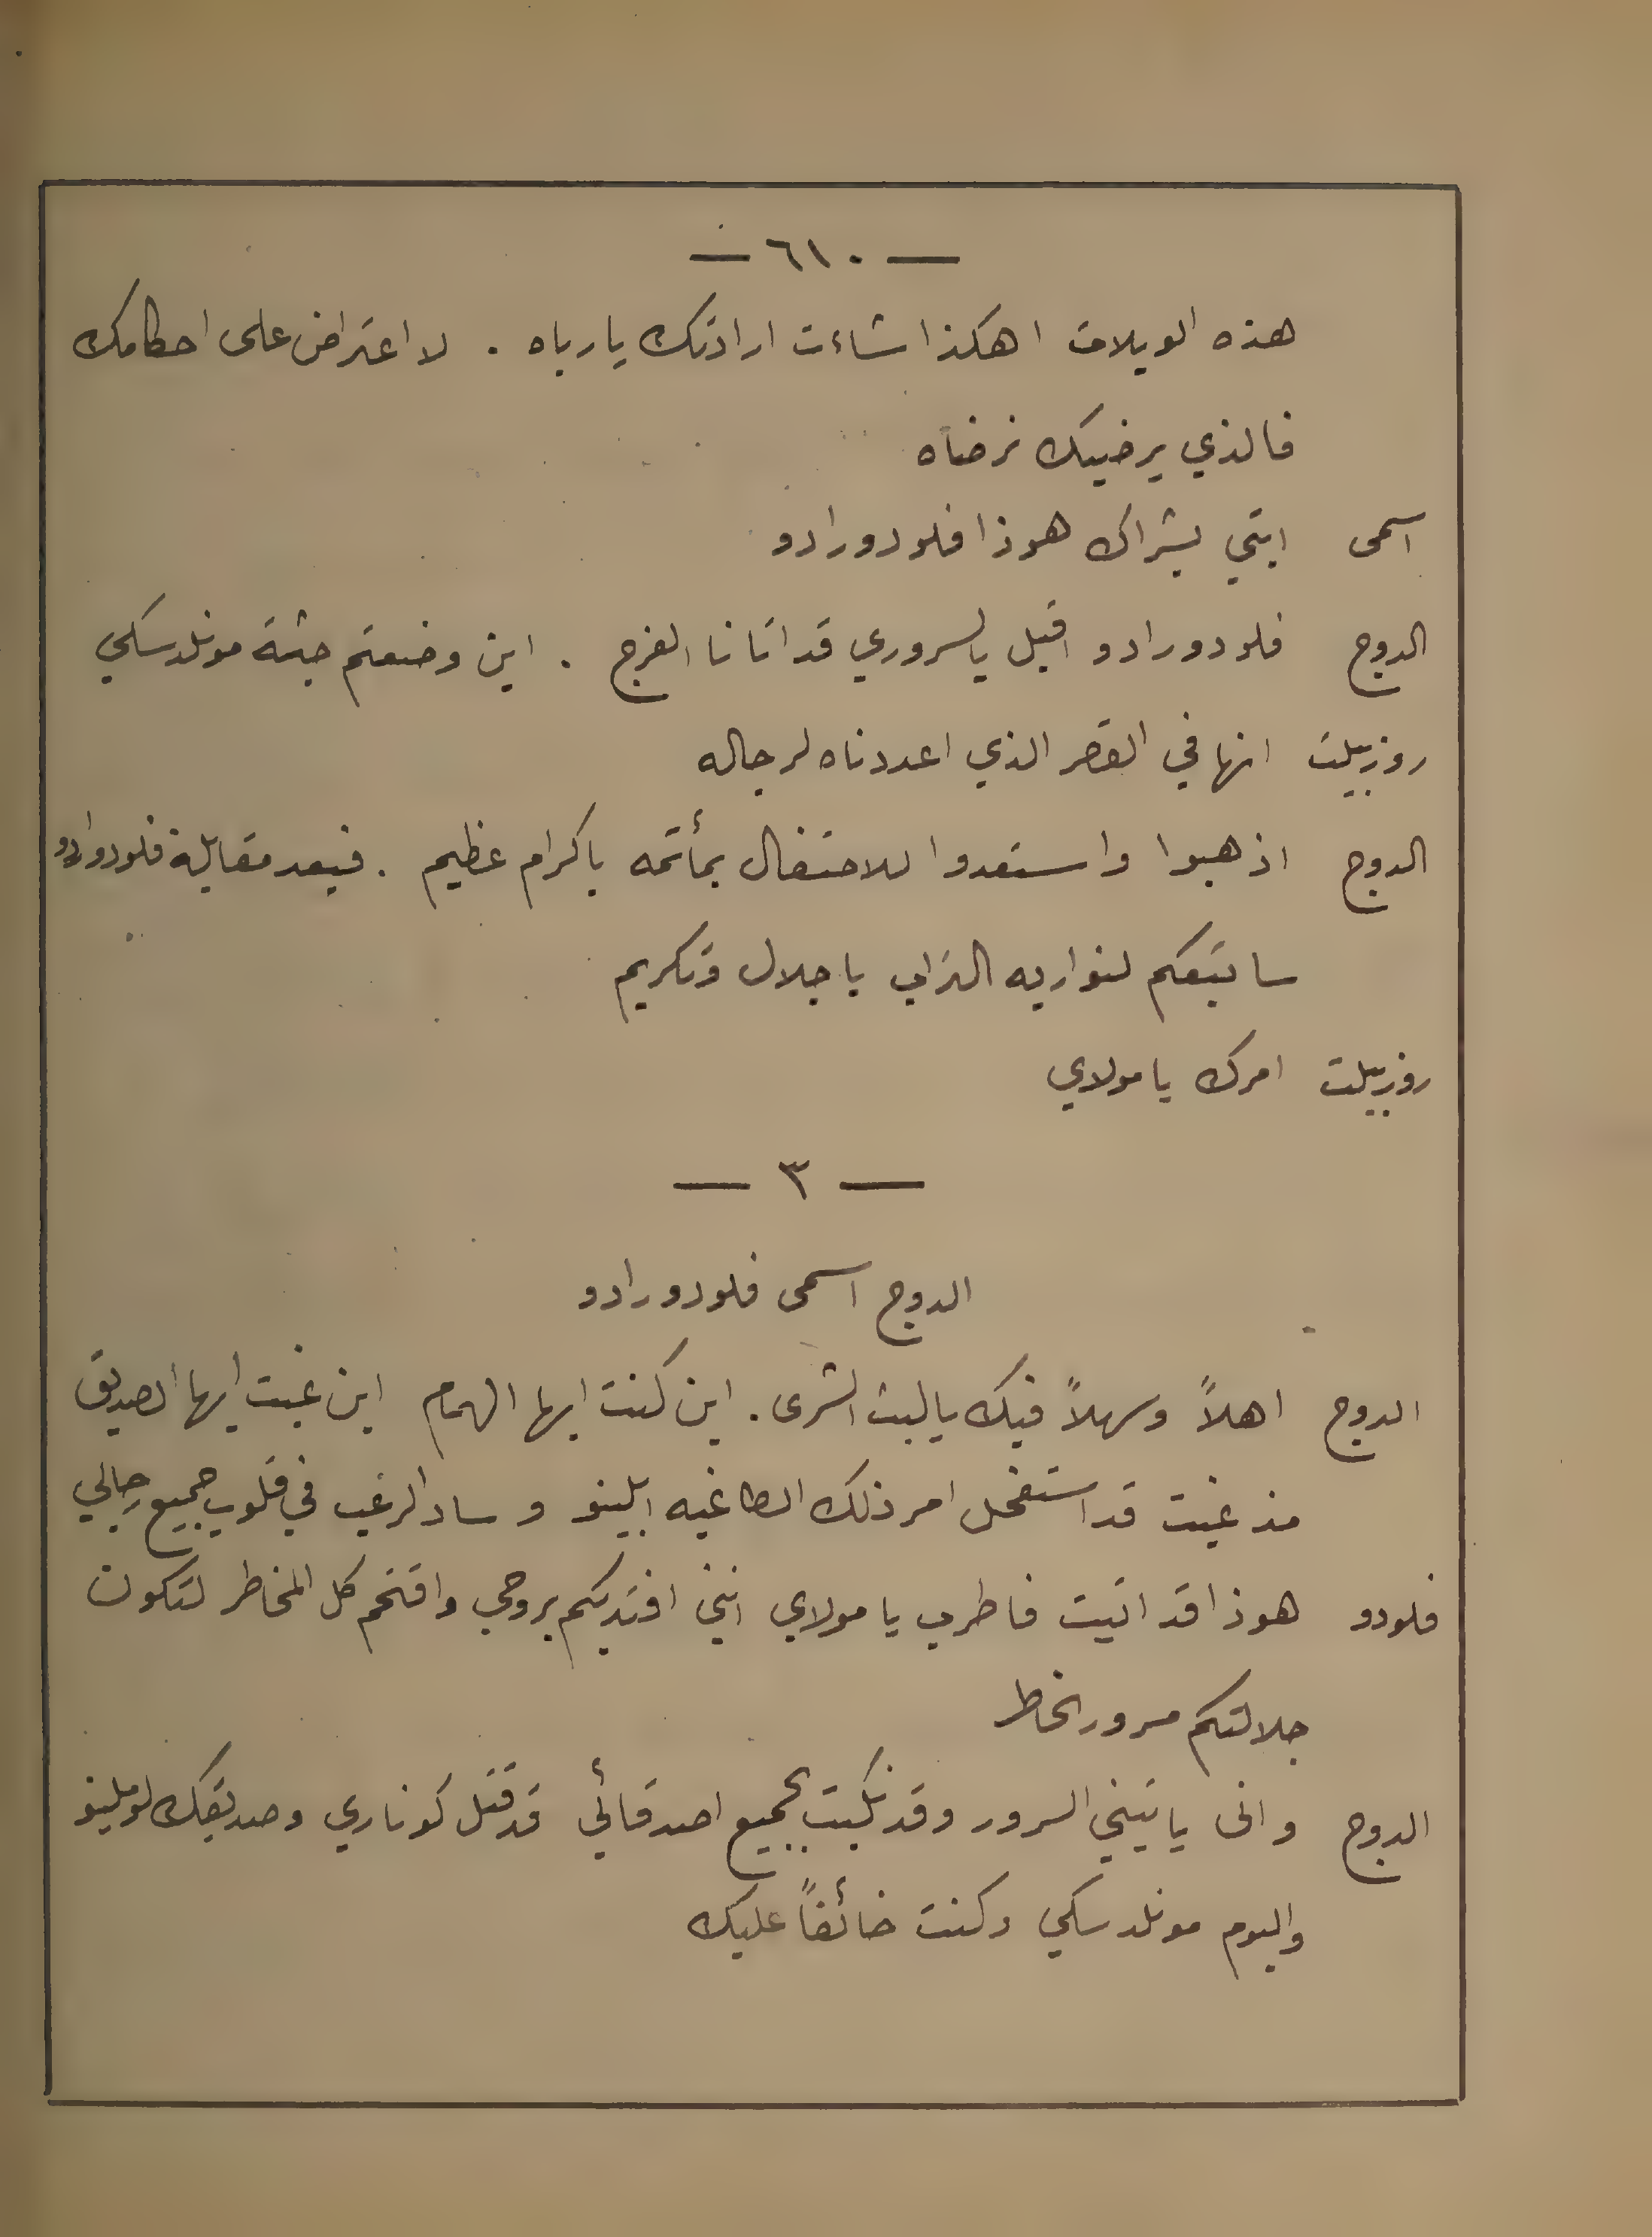 — ٦١٠ —
هذه الويلات اهكذا شاءت ارادتك يا رباه . لا اعتراض على احكامك
فالذي يرضيك نرضاه
اسمى ابتي بشراك هوذا فلودورادو
الدوج فلودورادو اقبل يا لسروري قد اتانا الفرج . اين وضعتم جثة مونلدسكي
روزبيلت انها في القصر الذي اعددناه لرجاله
الدوج اذهبوا واستعدوا للاحتفال بمأتمه باكرام عظيم . فبعد مقابلة فلودورادو
ساتبعكم لنواريه التراب باجلال وتكريم
روزبيلت امرك يا مولاي
— ٣ —
الدوج اسمى فلودورادو
الدوج اهلاً وسهلاً فيك يا ليث الشرى . اين كنت ايها الهمام اين غبت ايها الصديق
مذ غبت قد استفحل امر ذلك الطاغيه ابلينو وساد الرعب في قلوب جميع رجالي
فلودو هوذا قد اتيت فاطرب يا مولاي انني افتديكم بروحي واقتحم كل المخاطر لتكون
جلالتكم مسرور الخاطر
الدوج وانى ياتيني السرور وقد نكبت بجميع اصدقائي قد قتل كوناري وصديقك لوملينو
واليوم مونلدسكي وكنت خائفاً عليك